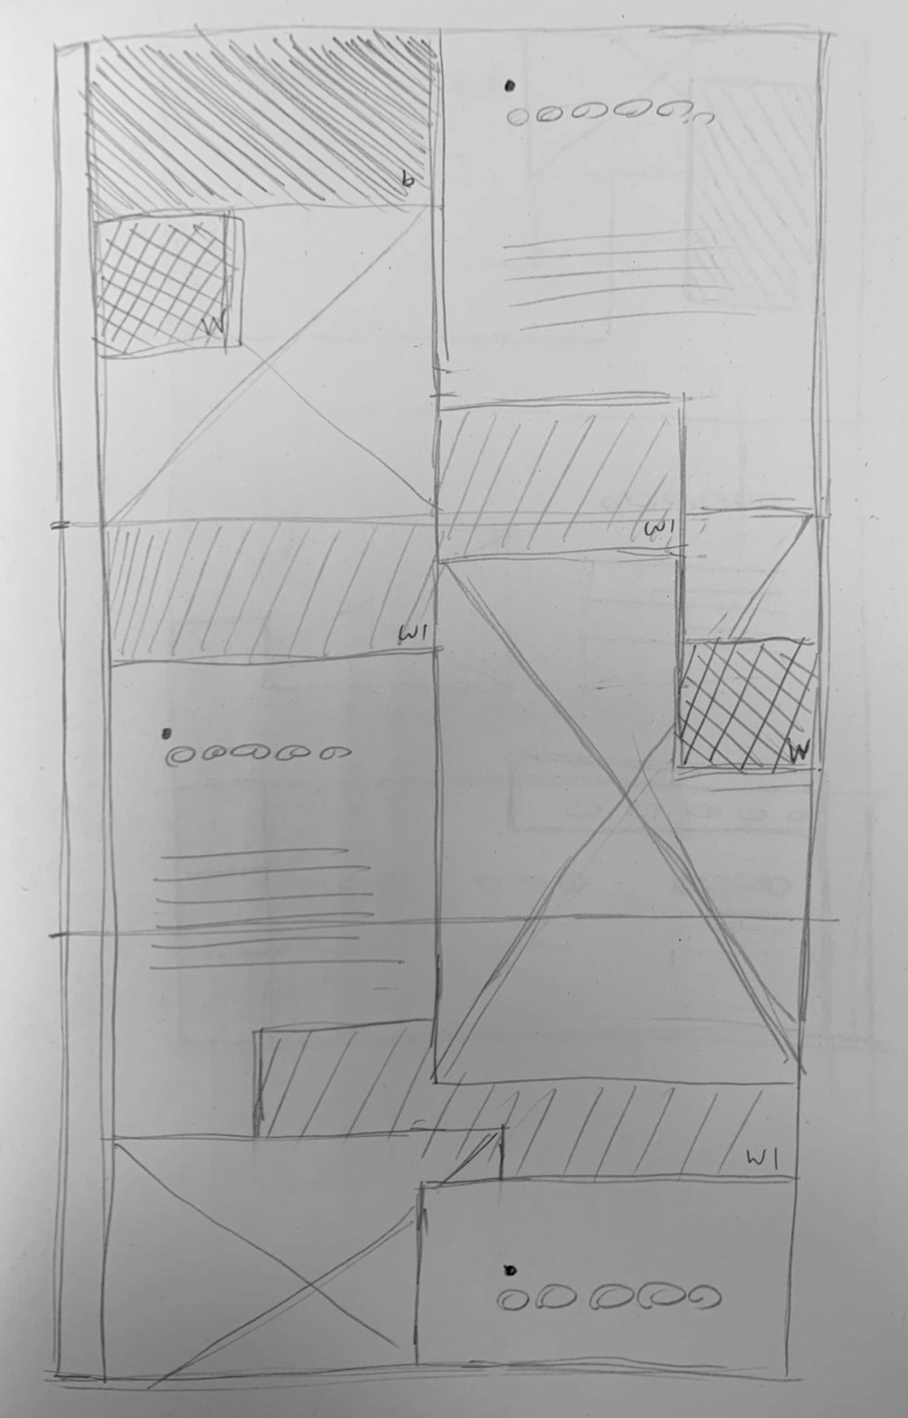 b
W
W1
W1
W
W1